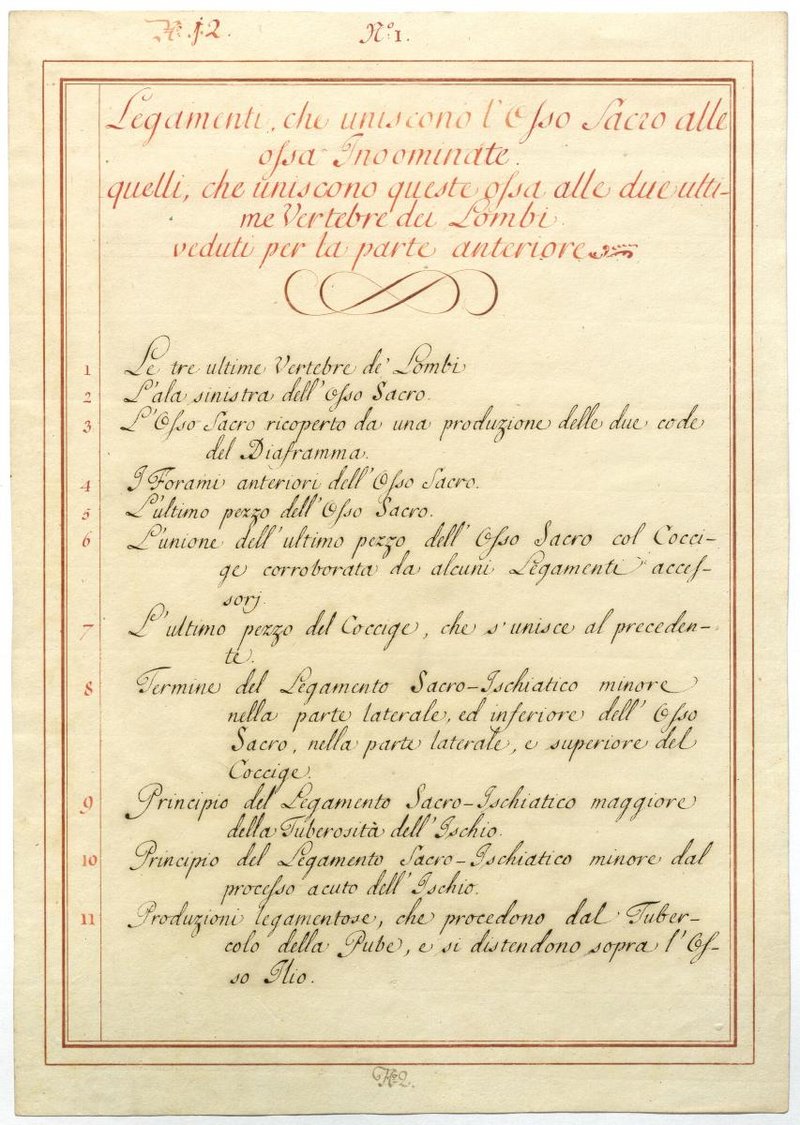 N.º 1.
Legamenti, che uniscono l'Osso Sacro alle
ossa Innominate.
quelli, che uniscono queste ossa alle due ulti-
me Vertebre dei Lombi
veduti per la parte anteriore
1 Le tre ultime Vertebre de' Lombi
2 L'ala sinistra dell'Osso Sacro.
3 L'Osso Sacro ricoperto da una produzione delle due code
del Diaframma.
4 I Forami anteriori dell'Osso Sacro.
5 L'ultimo pezzo dell'Osso Sacro.
6 L'unione dell'ultimo pezzo dell'Osso Sacro col Cocci-
ge corroborata da alcuni Legamenti acces-
sorj.
7 L'ultimo pezzo del Coccige, che s'unisce al preceden-
te.
8 Termine del Legamento Sacro-Ischiatico minore
nella parte laterale, ed inferiore dell'Osso
Sacro, nella parte laterale, e superiore del
Coccige.
9 Principio del Legamento Sacro-Ischiatico maggiore
della Tuberosità dell'Ischio.
10 Principio del Legamento Sacro-Ischiatico minore dal
processo acuto dell'Ischio.
11 Produzioni legamentose, che procedono dal Tuber-
colo della Pube, e si distendono sopra l'Os-
so Ilio.